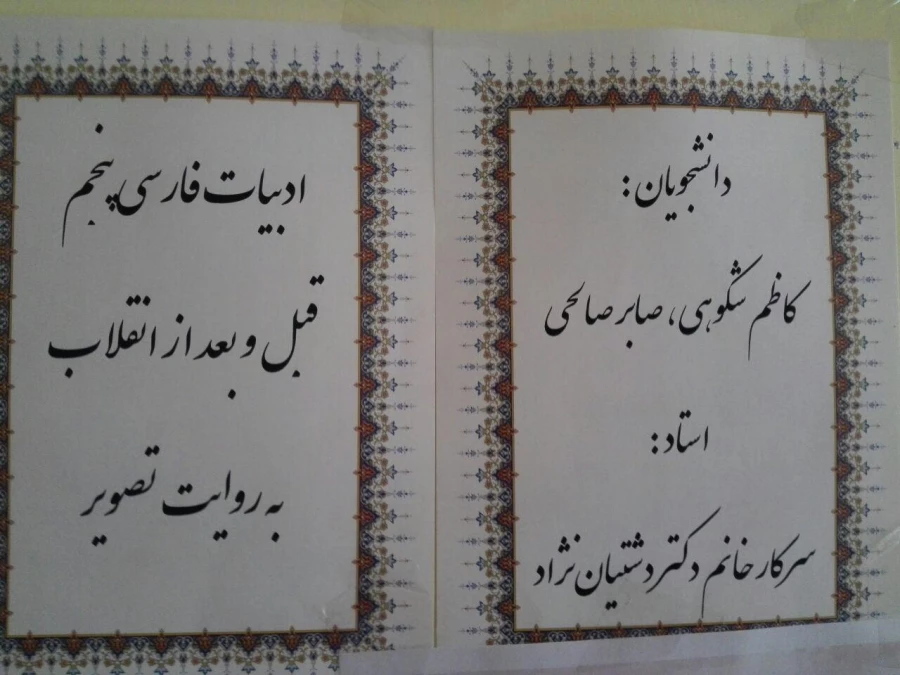 دانشجویان:
کاظم شکوهی، صابر صالحی
استاد:
سرکار خانم دکتر دشتیان نژاد
ادبیات فارسی پنجم
قبل و بعد از انقلاب
به روایت تصویر